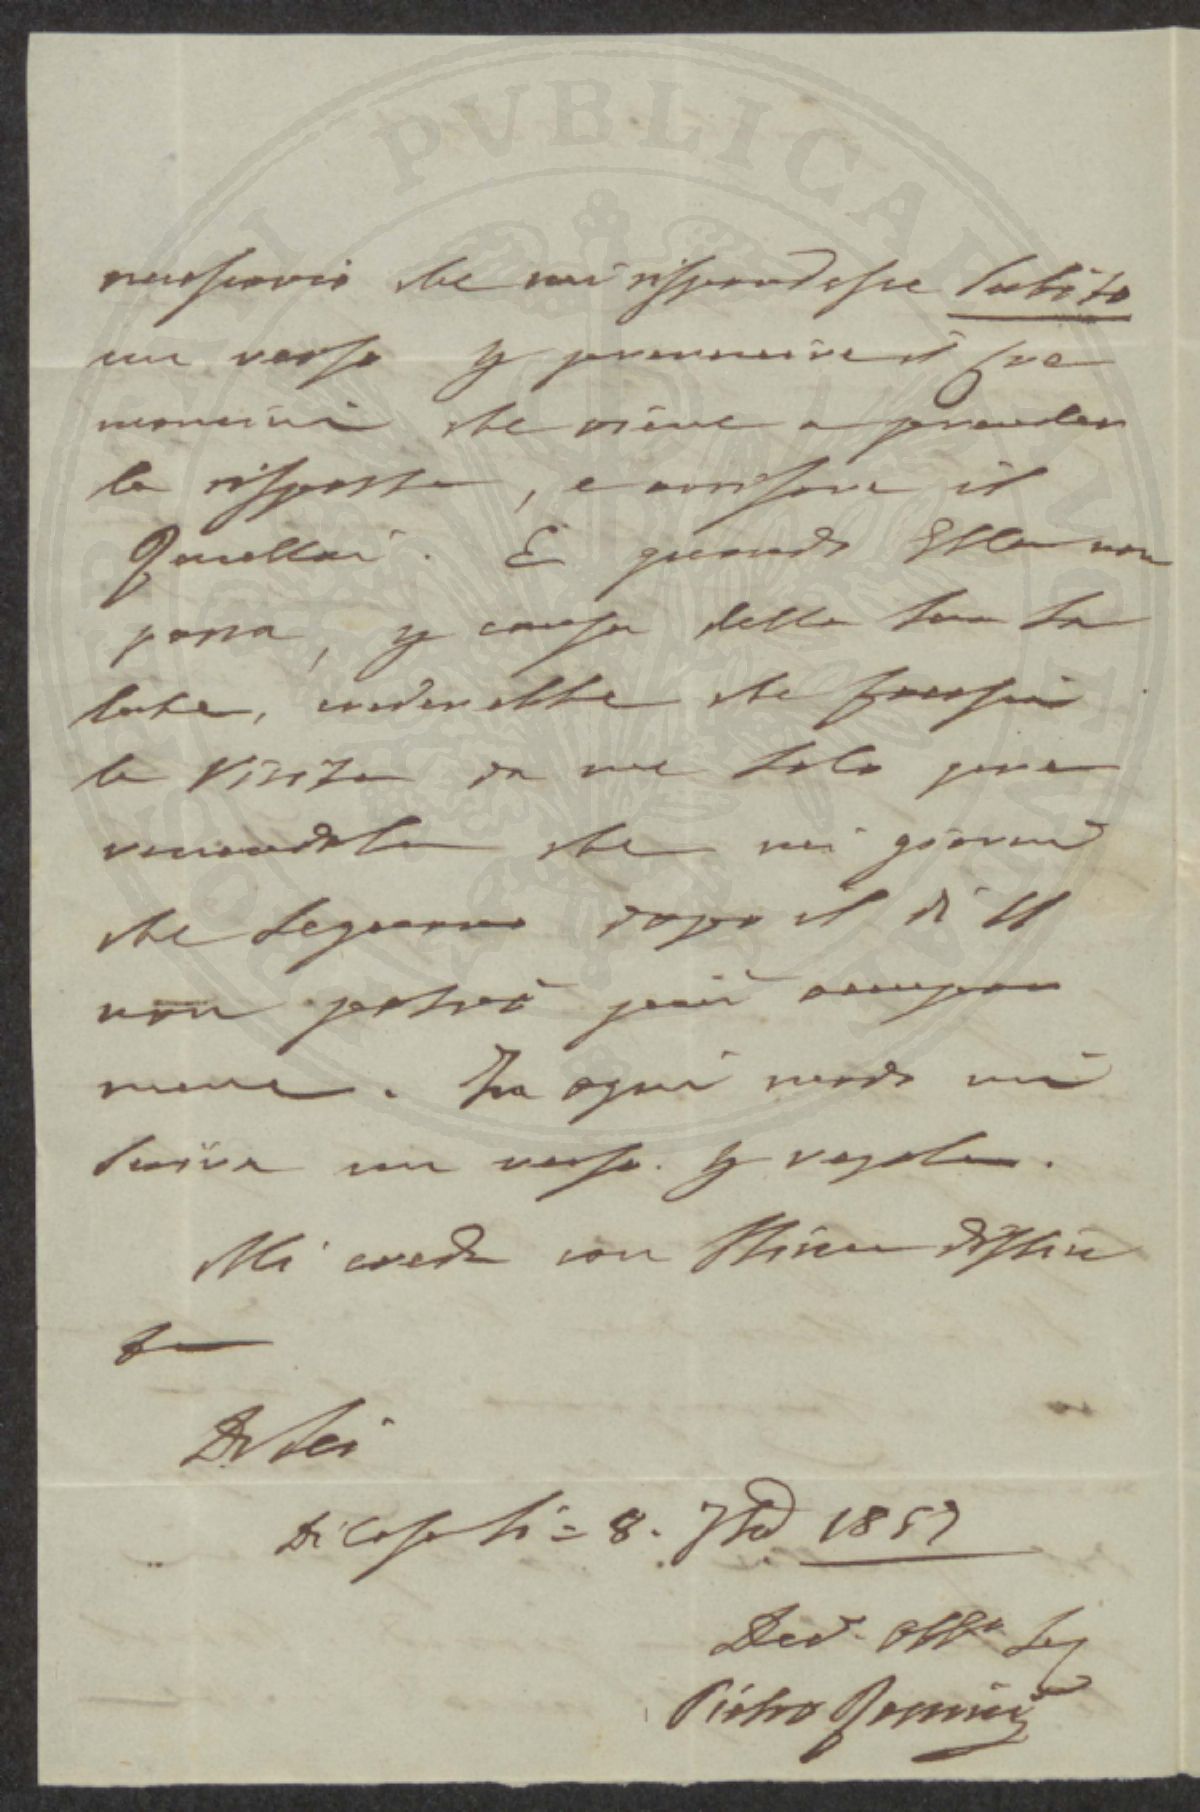 PVBLICAE
necessario che mi rispondesse subito
un verso p prevenire il
che viene a prender
la risposta, e avvisare il
E quando Ella non
possa, p causa della sua sa
lute, crederebbe che facessi
la visita da me solo
che nei giorni
che seguono dopo il dì 11
non potrò più occupar
mene. In ogni modo mi
scriva un verso p regola.
Mi creda con stima distin
ta
Di Lei
Di Casa li = 8. 7bre 1857
Dev. Obb. Ser
Pietro